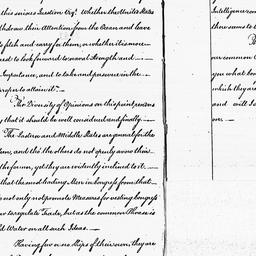 this serious Question Viz. Whether the United States
withdraw their Attention from the Ocean and leave
to fetch and carry for them, or whether it is more
rest to look forward to naval Strength and
Importance, and to take and persevere in the
proper to attain it?
The Diversity of Opinions on this point renders
that it should be well considered and finally
The Eastern and Middle States are general for the
tem, and tho' the others do not openly avow their
the former, yet they are evidently inclined to it.
that the most leading Men in Congress from that
not only not promote Measures for vesting Congress
to regulate Trade, but as the common Phrase is
ld Water on all such Ideas.
Having few or no Ships of their own, they are
Intelligence
there seems to
our common
you what
which they are
and will